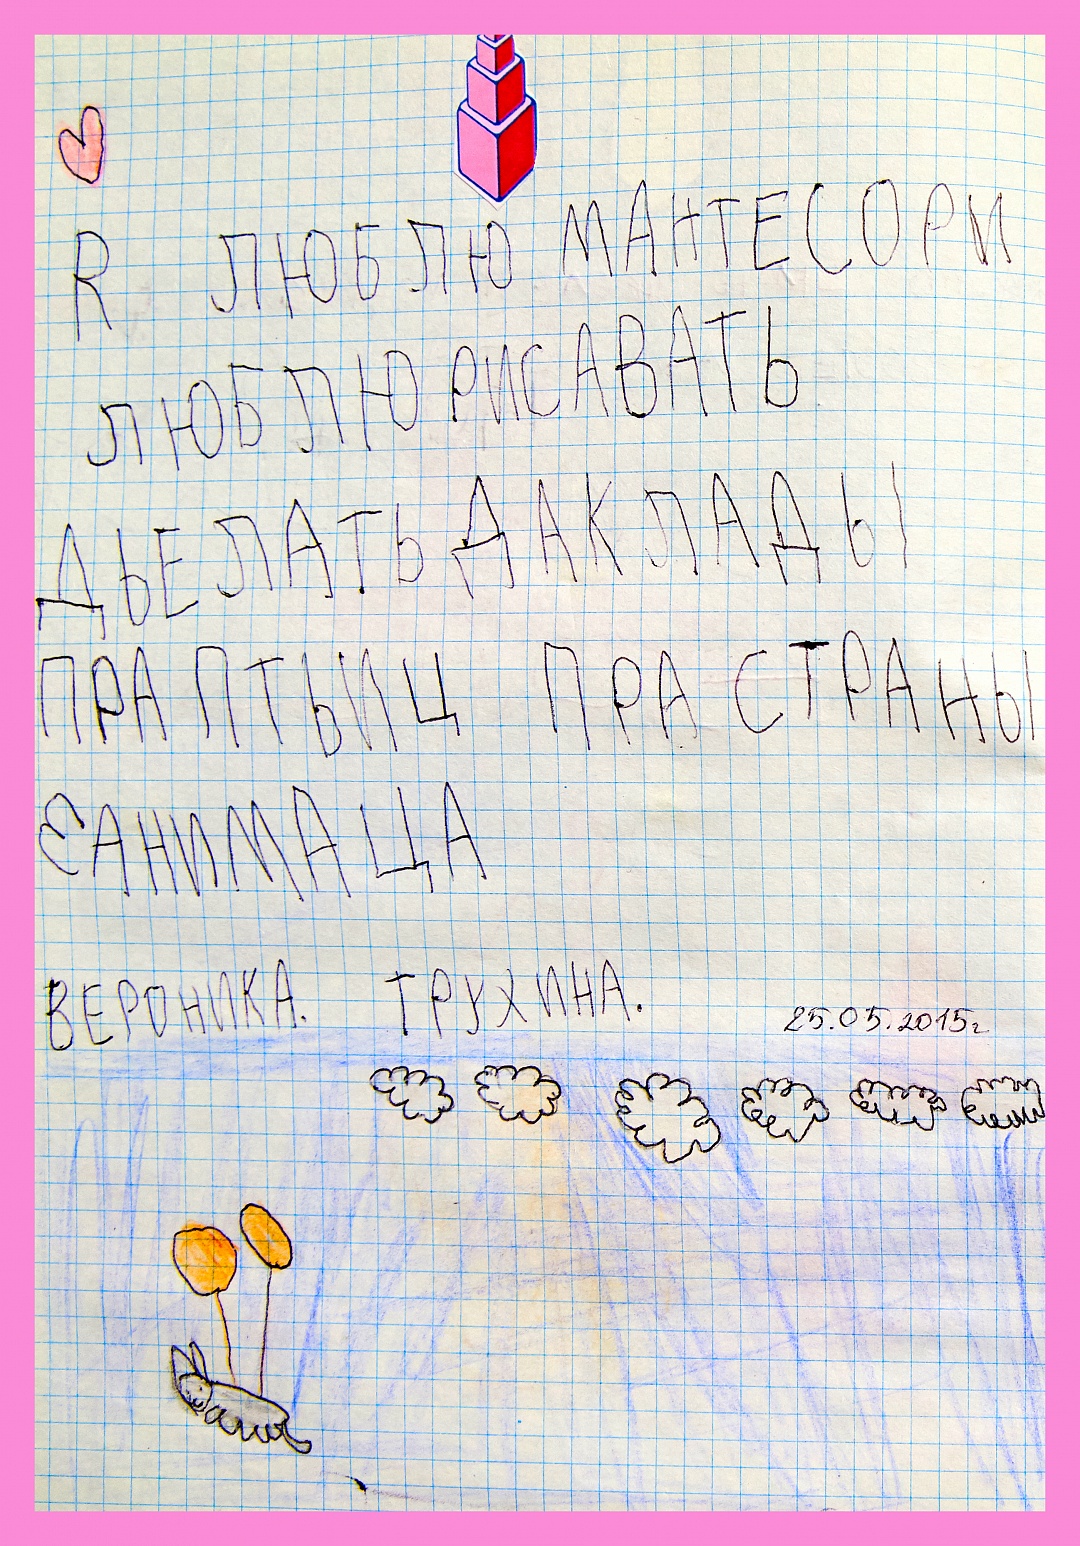 R ЛЮБЛЮ МАНТЕСОРИ
ЛЮБЛЮ РИСАВАТЬ
ДЬЕЛАТЬ ДАКЛАДЫ
ПРА ПТЬИЦ ПРА СТРАНЫ
ЗАНИМАЦА
ВЕРОНИКА. ТРУХИНА.
25.05.2015г